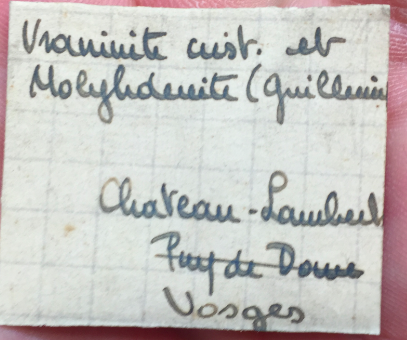 Uraninite crist. et
Molybdenite (Guillemin
Chateau-Lambert
Puy de Dome
Vosges